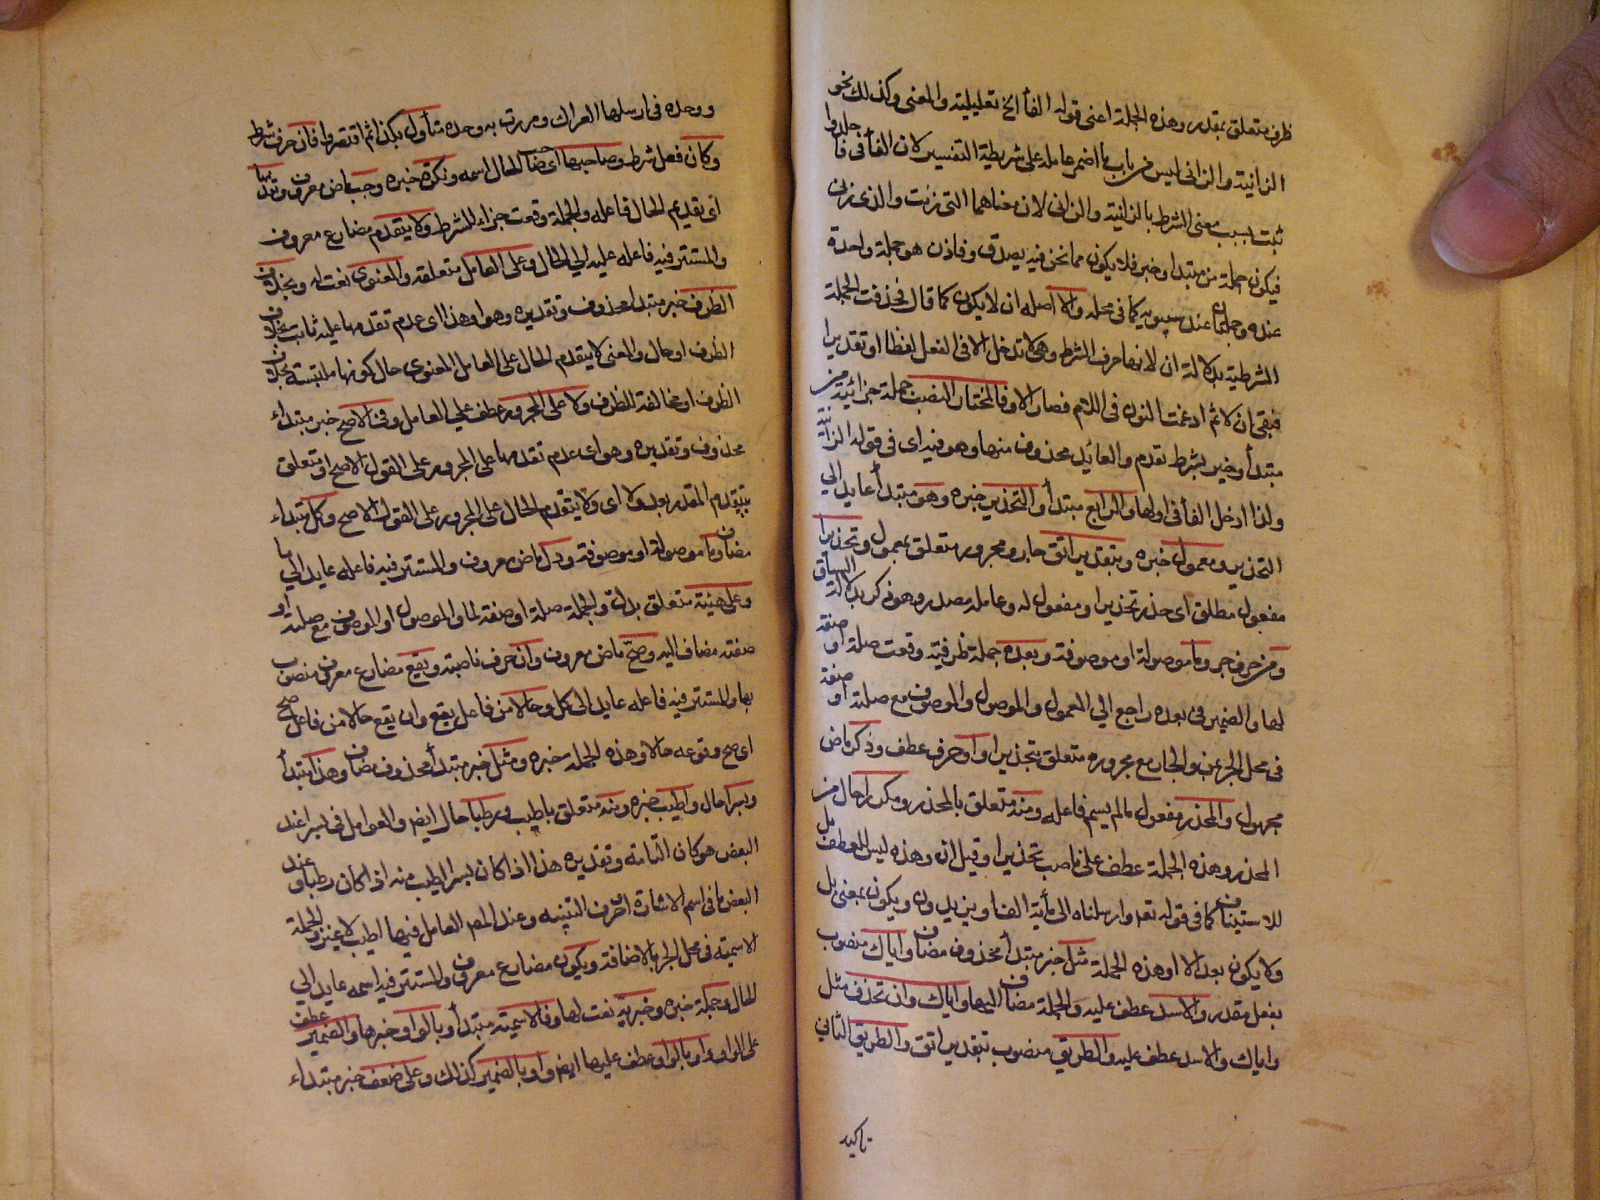 ظرف متعلق بمقدر وهذه الجملة اعنى قوله الفأ الخ تعليلية والمعنى وكذلك نحو
الزانية والزانى ليس من باب ما اضمر عامله على شريطة التفسير لان الفأ فى فاجلدوا
ثبت بسبب معنى الشرط بالزانية والزانى لان معناهما التى زنت والذى زنى
فيكون جملة من مبتدا وخبر فلا يكون مما نحن فيه يصدق وفاذن هو جملة واحدة
عنده وجملتان عند سيبويه كما فى محله والا اصله ان لا يكون كما قال فحذفت الجملة
الشرطية بدلالة ان لانها حرف الشرط وهى لا تدخل الا فى الفعل لفظا او تقديرا
فبقى ان لا ثم ادغمت النون فى اللام فصار الا وفالمختار النصب جملة جزائية من
مبتدأ وخبر بشرط تقدم والعائد محذوف منها وهو فيه اى فى قوله الزانية
ولذا ادخل الفأ فى اولها والرابع مبتدأ والتحذير خبره وهو مبتدأ عايد الى
التحذير ومعمول خبره وبتقدير اتق جار ومجرور متعلق بمعمول وتحذيرا
مفعول مطلق اى حذر تحذيرا او مفعول له وعامله مصدر وهو ذكر بدلالة السياق
ومن حرف جر وما موصولة او موصوفة وبعده جملة ظرفية وقعت صلة او صفة
لها والضمير فى بعده راجع الى المعمول والموصول والموصوف مع صلة او صفة
فى محل الجر بمن والجار مع مجروره متعلق بتحذيرا واو حرف عطف وذكر ماض
مجهول والمحذر مفعول مالم يسم فاعله ومنه متعلق بالمحذر ومكررا حال من
المحذر وهذه الجملة عطف على ناصب تحذيرا وقيل ان وهذه ليس للعطف بل
للاستيناف كما فى قوله تعم وارسلناه الى مأية الف او يزيدون ويكون بمعنى بل
ولا يكون بعد الا او هذه الجملة مثل خبر مبتدأ محذوف مضاف واياك منصوب
بفعل مقدر والاسد عطف عليه والجملة مضاف اليها واياك وان تحذف مثل
واياك والاسد عطف عليه والطريق منصوب بتقدير اتق والطريق الثانى
تاكيد
ووحده فى ارسلها العراك ومررت به وحده متأول بكذا ثم اقتصروا فان حرف شرط
وكان فعل شرط وصاحبها اى صاحب الحال اسمه ونكرة خبره وجب ماض معروف وتقديمها
اى تقديم الحال فاعله والجملة وقعت جزاء للشرط ولا يتقدم مضارع معروف
والمستتر فيه فاعله عايد الى الحال وعلى العامل متعلقه والمعنوى نعت له وبخلاف
الظرف خبر مبتدا محذوف وتقديره وهو او هذا اى عدم تقدمها عليه ثابت بخلاف
الظرف او حال والمعنى لا يتقدم الحال على العامل المعنوى حال كونها ملتبسة بخلاف
الظرف او مخالفة للظرف ولا على المجرور عطف على العامل وفى الاصح خبر مبتداء
محذوف وتقديره وهو اى عدم تقدمها على المجرور على القول الاصح او متعلق
بيتقدم المقدر بعد ولا اى ولا يتقدم الحال على المجرور على القول الاصح وكل مبتداء
مضاف وما موصولة او موصوفة ودل ماض معروف والمستتر فيه فاعله عايد الى ما
وعلى هيئة متعلق بدل والجملة صلة او صفة لما والموصول او الموصوف مع صلته او
صفته مضاف اليه وصح ماض معروف وان حرف ناصبة ويقع مضارع معروف منصوب
بها والمستتر فيه فاعله عايد الى كل وحالا من فاعل يقع وان يقع حالا من فاعل صح
اى صح وقوعه حالا وهذه الجملة خبره ومثل خبر مبتدأ محذوف مضاف وهذا مبتدأ
وبسرا حال واطيب خبره ومنه متعلق باطيب ورطبا حال ايضم والعوامل فى بسرا عند
البعض هو كان التامة وتقديره هذا اذا كان بسرا اطيب منه اذا كان رطبا وعند
البعض ما فى اسم الاشارة او حرف التنبيه وعند المص العامل فيها اطيب لا غير والجملة
الاسمية فى محل الجر بالاضافة ويكون مضارع معروف والمستتر فيه اسمه عايد الى
الحال وجملة خبره وخبرية نعت لها وفالاسمية مبتدأ وبالواو خبرها والضمير عطف
على الواو واو بالواو عطف عليها ايضم واو بالضمير كذلك وعلى ضعف خبر مبتداء